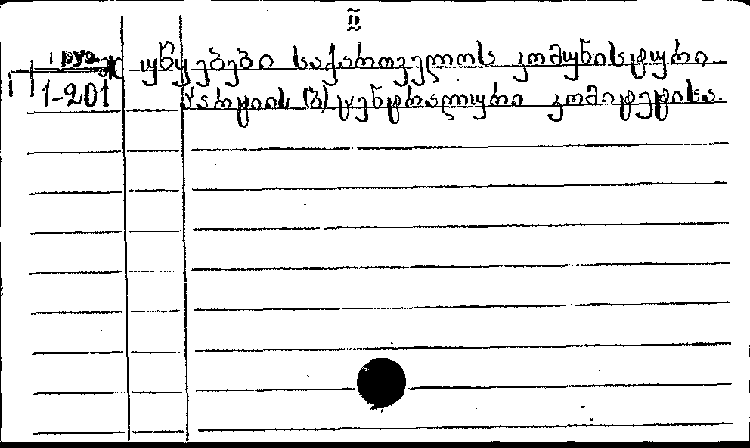 II
1 руз უწყებები საქართველოს კომუნისტური
1-201 პარტიის (ბ) ცენტრალური კომიტეტისა